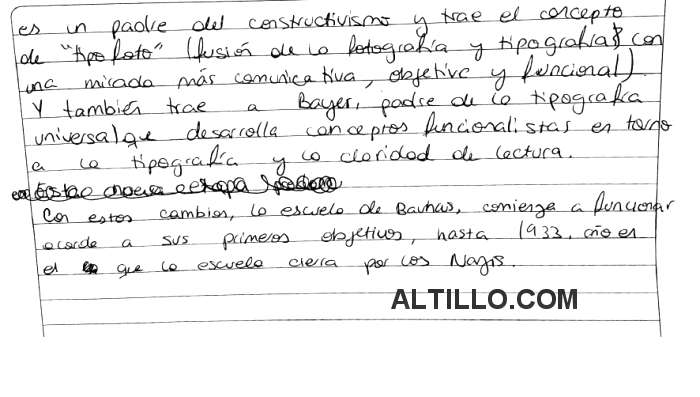 es un padre del constructivismo y trae el concepto
de "tipo foto" (fusión de la fotografía y tipografías) con
una mirada más comunicativa, objetiva y funcional).
Y también trae a Bayer, padre de la tipografía
universal que desarrolla conceptos funcionalistas en torno
a la tipografía y la claridad de lectura.
Con estos cambios, la escuela de Bauhas, comienza a funcionar
acorde a sus primeros objetivos, hasta 1933, año en
el que la escuela cierra por los Nazis.
ALTILLO.COM